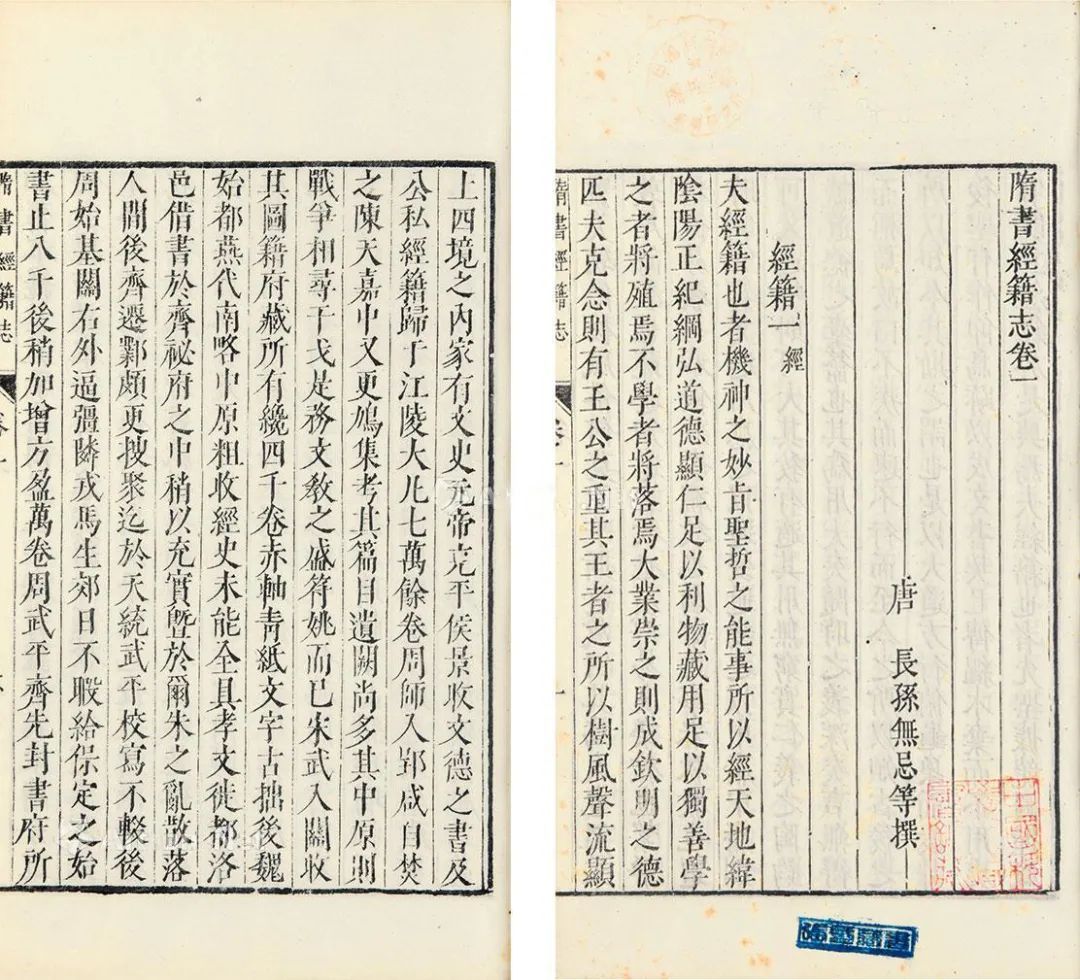 隋書經籍志卷一
唐　長孫無忌等撰
經籍一　經
夫經籍也者機神之妙旨聖哲之能事所以經天地緯
陰陽正紀綱弘道德顯仁足以利物藏用足以獨善學
之者將殖焉不學者將落焉大業崇之則成欽明之德
匹夫克念則有王公之重其王者之所以樹風聲流顯
隋書經籍志　卷一　一
上四境之內家有文史元帝克平侯景收文德之書及
公私經籍歸于江陵大凡七萬餘卷周師入郢咸自焚
之陳天嘉中又更鳩集考其篇目遺闕尚多其中原則
戰爭相尋干戈是務文敎之盛符姚而已宋武入關收
其圖籍府藏所有纔四千卷赤軸靑紙文字古拙後魏
始都燕代南略中原粗收經史未能全具孝文徙都洛
邑借書於齊祕府之中稍以充實曁於爾朱之亂散落
人間後齊遷鄴頗更搜聚迄於天統武平校寫不輟後
周始基關右外逼彊隣戎馬生郊日不暇給保定之始
書止八千後稍加增方盈萬卷周武平齊先封書府所
隋書經籍志　卷一